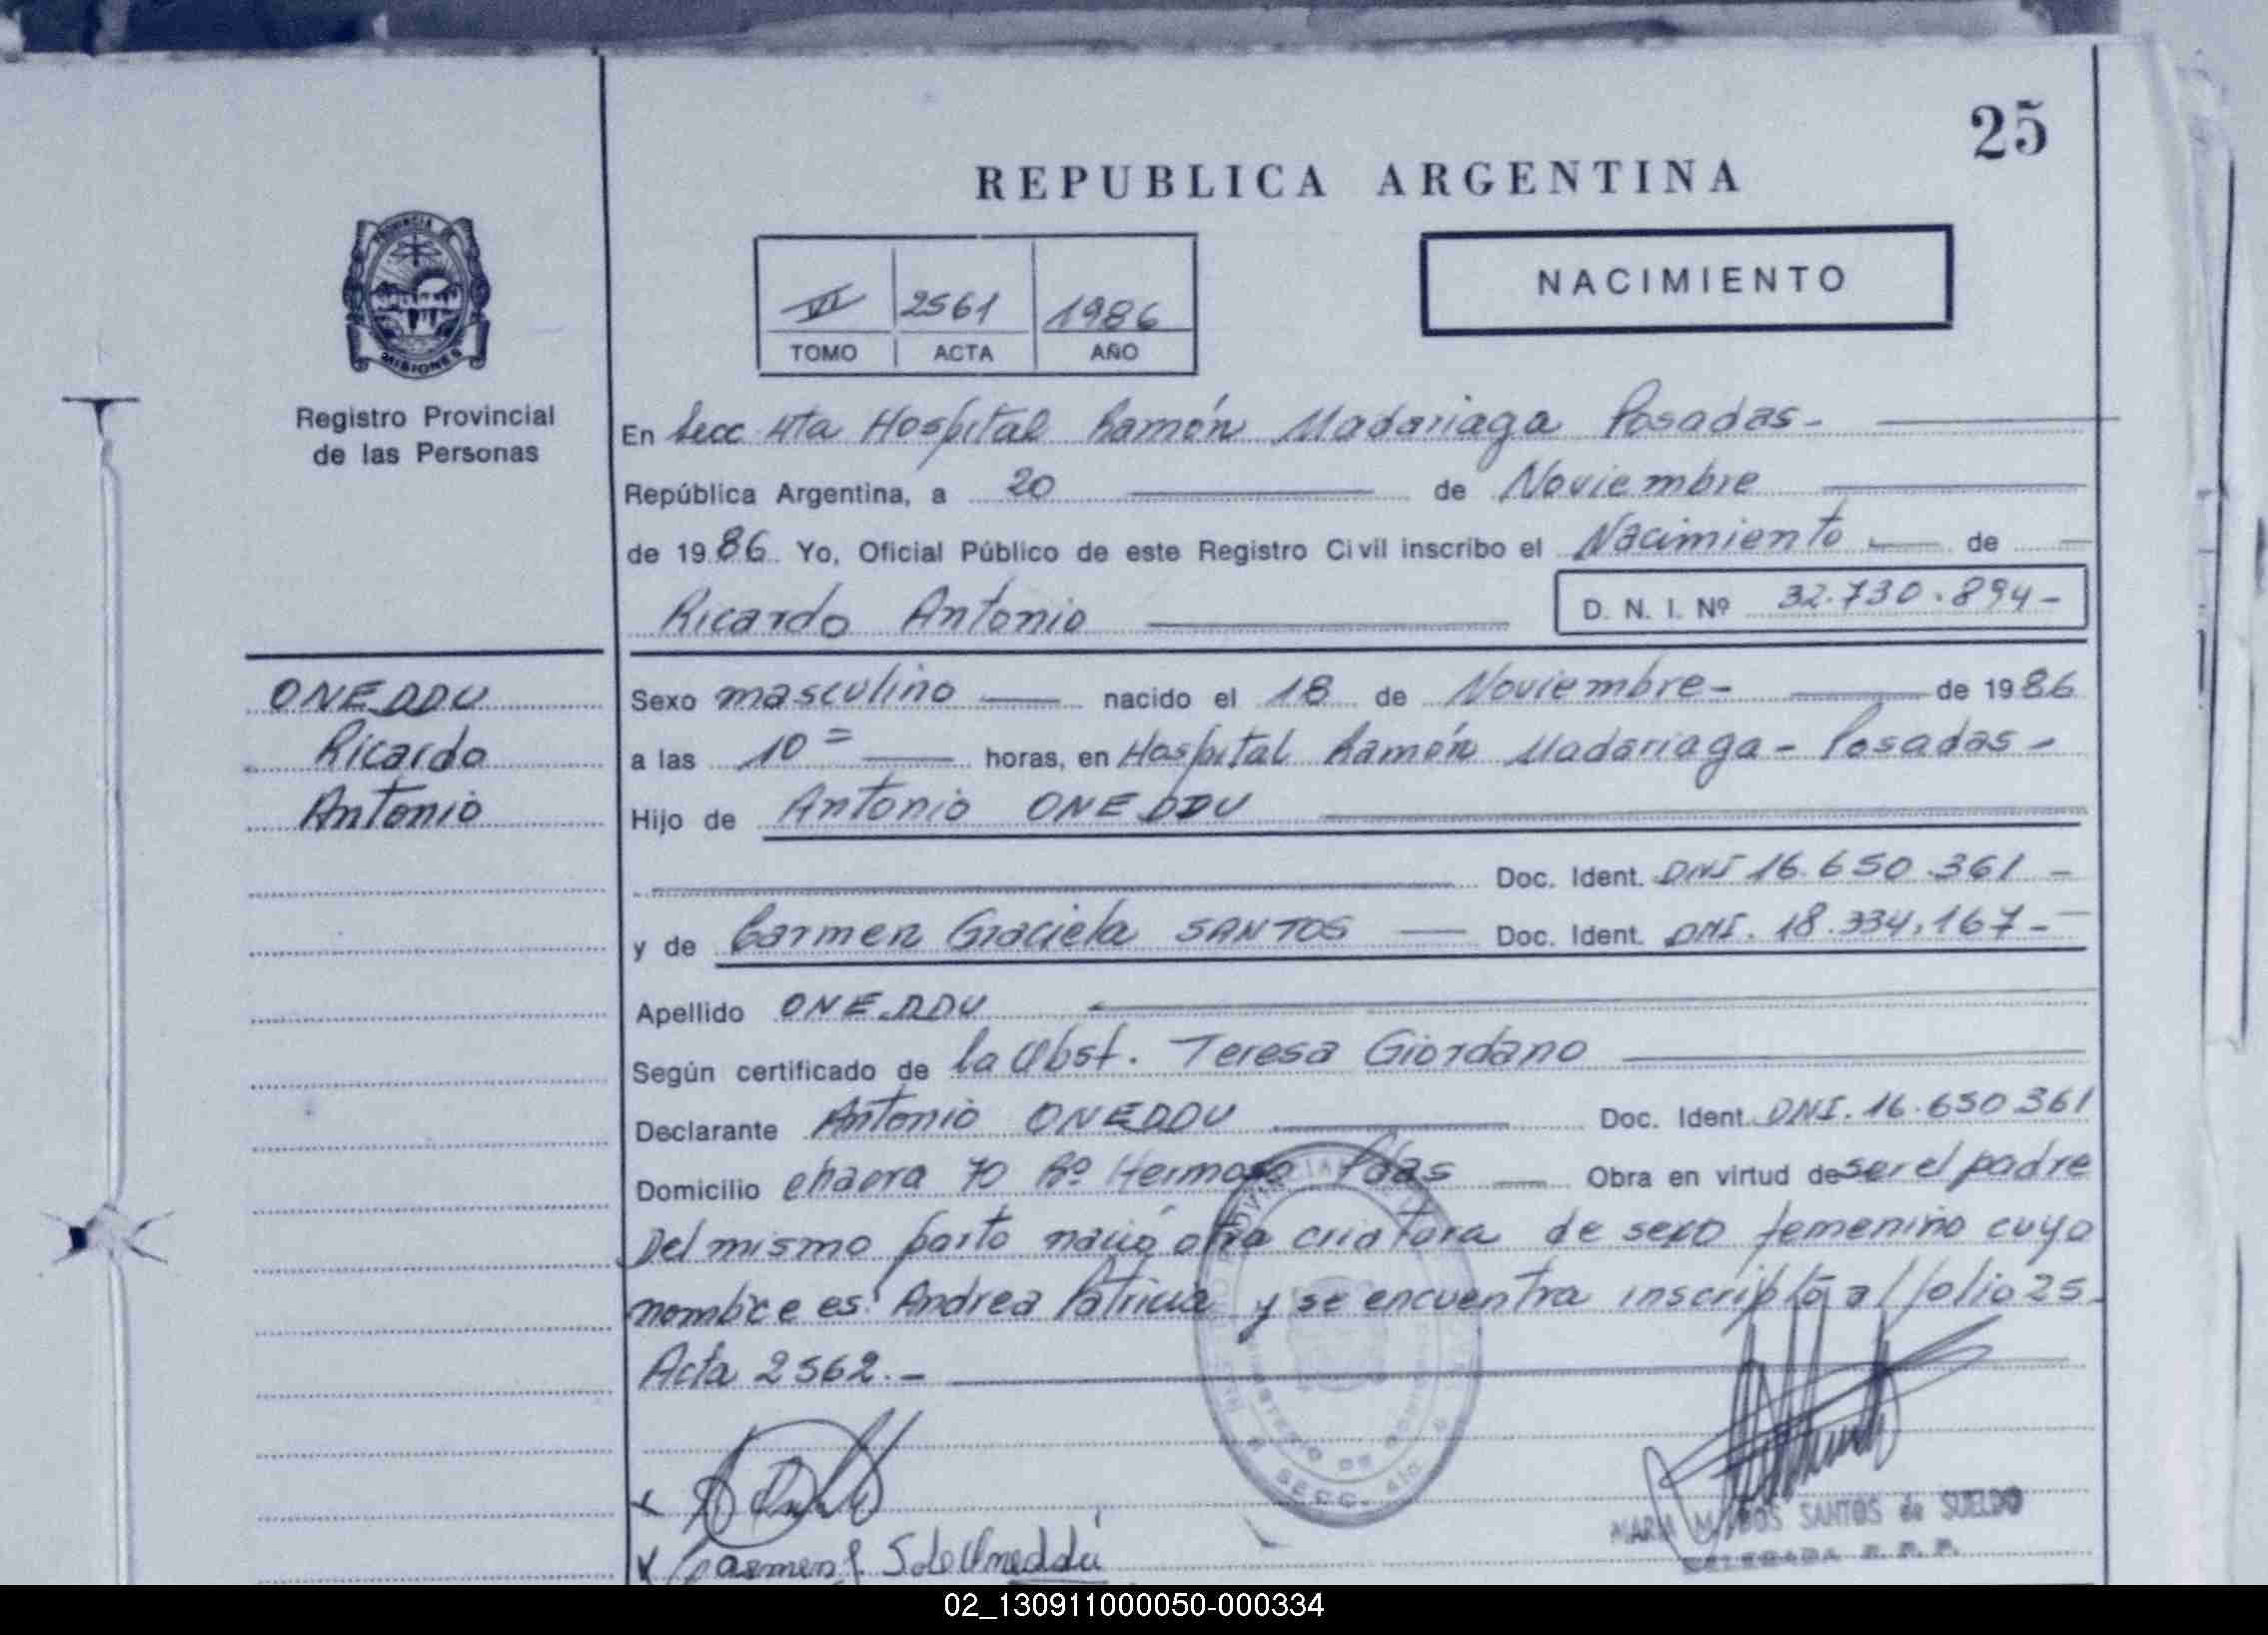 25
REPUBLICA ARGENTINA
PROVINCIA DE
MISIONES
Registro Provincial
de las Personas
VI 2561 1986
TOMO ACTA AÑO
NACIMIENTO
En Secc 4ta Hospital Ramón Madariaga Posadas-
República Argentina, a 20 de Noviembre
de 1986 Yo, Oficial Público de este Registro Civil inscribo el Nacimiento de
Ricardo Antonio
D. N. I. Nº 32.730.894-
ONEDDU
Ricardo
Antonio
Sexo masculino nacido el 18 de Noviembre- de 1986
a las 10= horas, en Hospital Ramón Madariaga - Posadas -
Hijo de Antonio ONEDDU
Doc. Ident. DNI 16.650.361 -
y de Carmen Graciela SANTOS Doc. Ident. DNI. 18.334.167-
Apellido ONEDDU
Según certificado de la Obst. Teresa Giordano
Declarante Antonio ONEDDU Doc. Ident. DNI. 16.650 361
Domicilio chacra 70 Bº Hermoso Pdas Obra en virtud de ser el padre
Del mismo parto nació otra criatura de sexo femenino cuyo
nombre es: Andrea Patricia y se encuentra inscripto al folio 25.
Acta 2562.-
SECC. 4ta
MINISTERIO DE GOBIERNO
MARIA SANTOS de SUELDO
DELEGADA R. P. P.
02_130911000050-000334